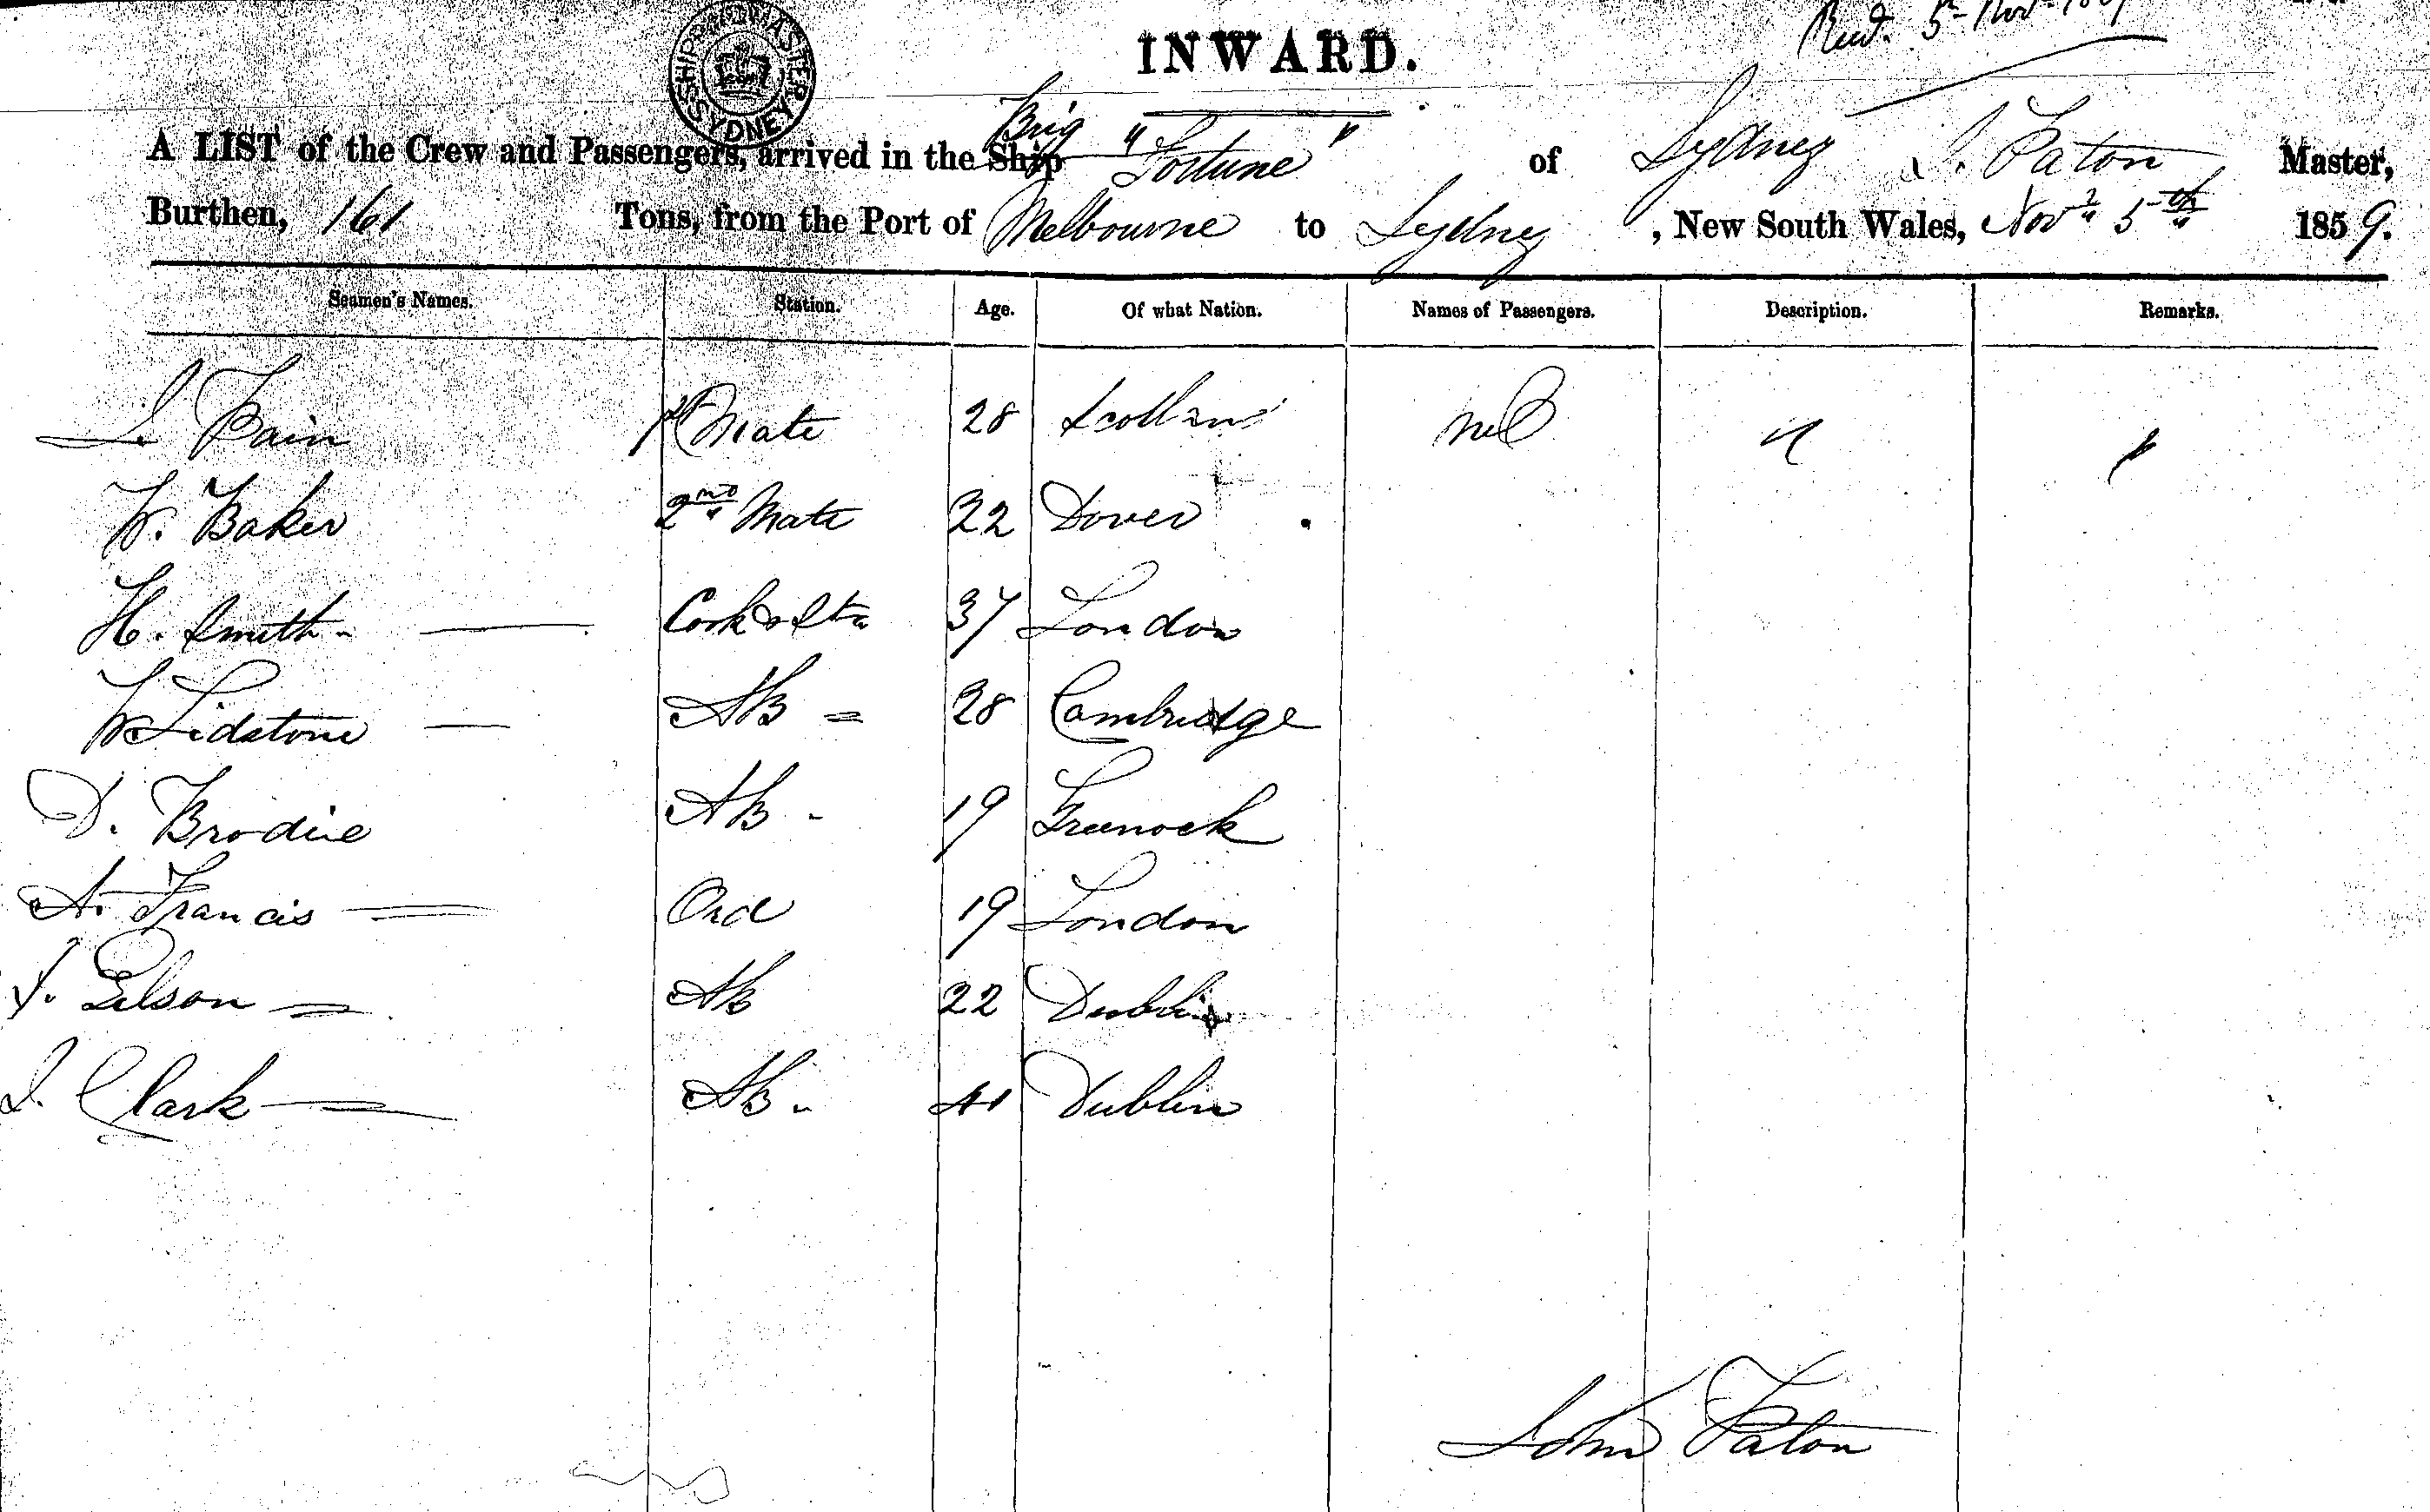 SHIPPING MASTER SYDNEY
INWARD.
Recd. 5th Nov
A LIST of the Crew and Passengers, arrived in the Ship Brig "Fortune" of Sydney J. Paton Master,
Burthen, 161 Tons, from the Port of Melbourne to Sydney, New South Wales, Novr 5th 1859.
Seamen's Names. Station. Age. Of what Nation. Names of Passengers. Description. Remarks.
Bain 1st Mate 28 Scotland nil
W. Baker 2nd Mate 22 Dover
H. Smith Cook & Stw 37 London
W Lidstone AB 28 Cambridge
D. Brodie AB 19 Greenock
A. Francis Ord 19 London
J. Gelson AB 22 Dublin
J. Clark AB 41 Dublin
John Paton